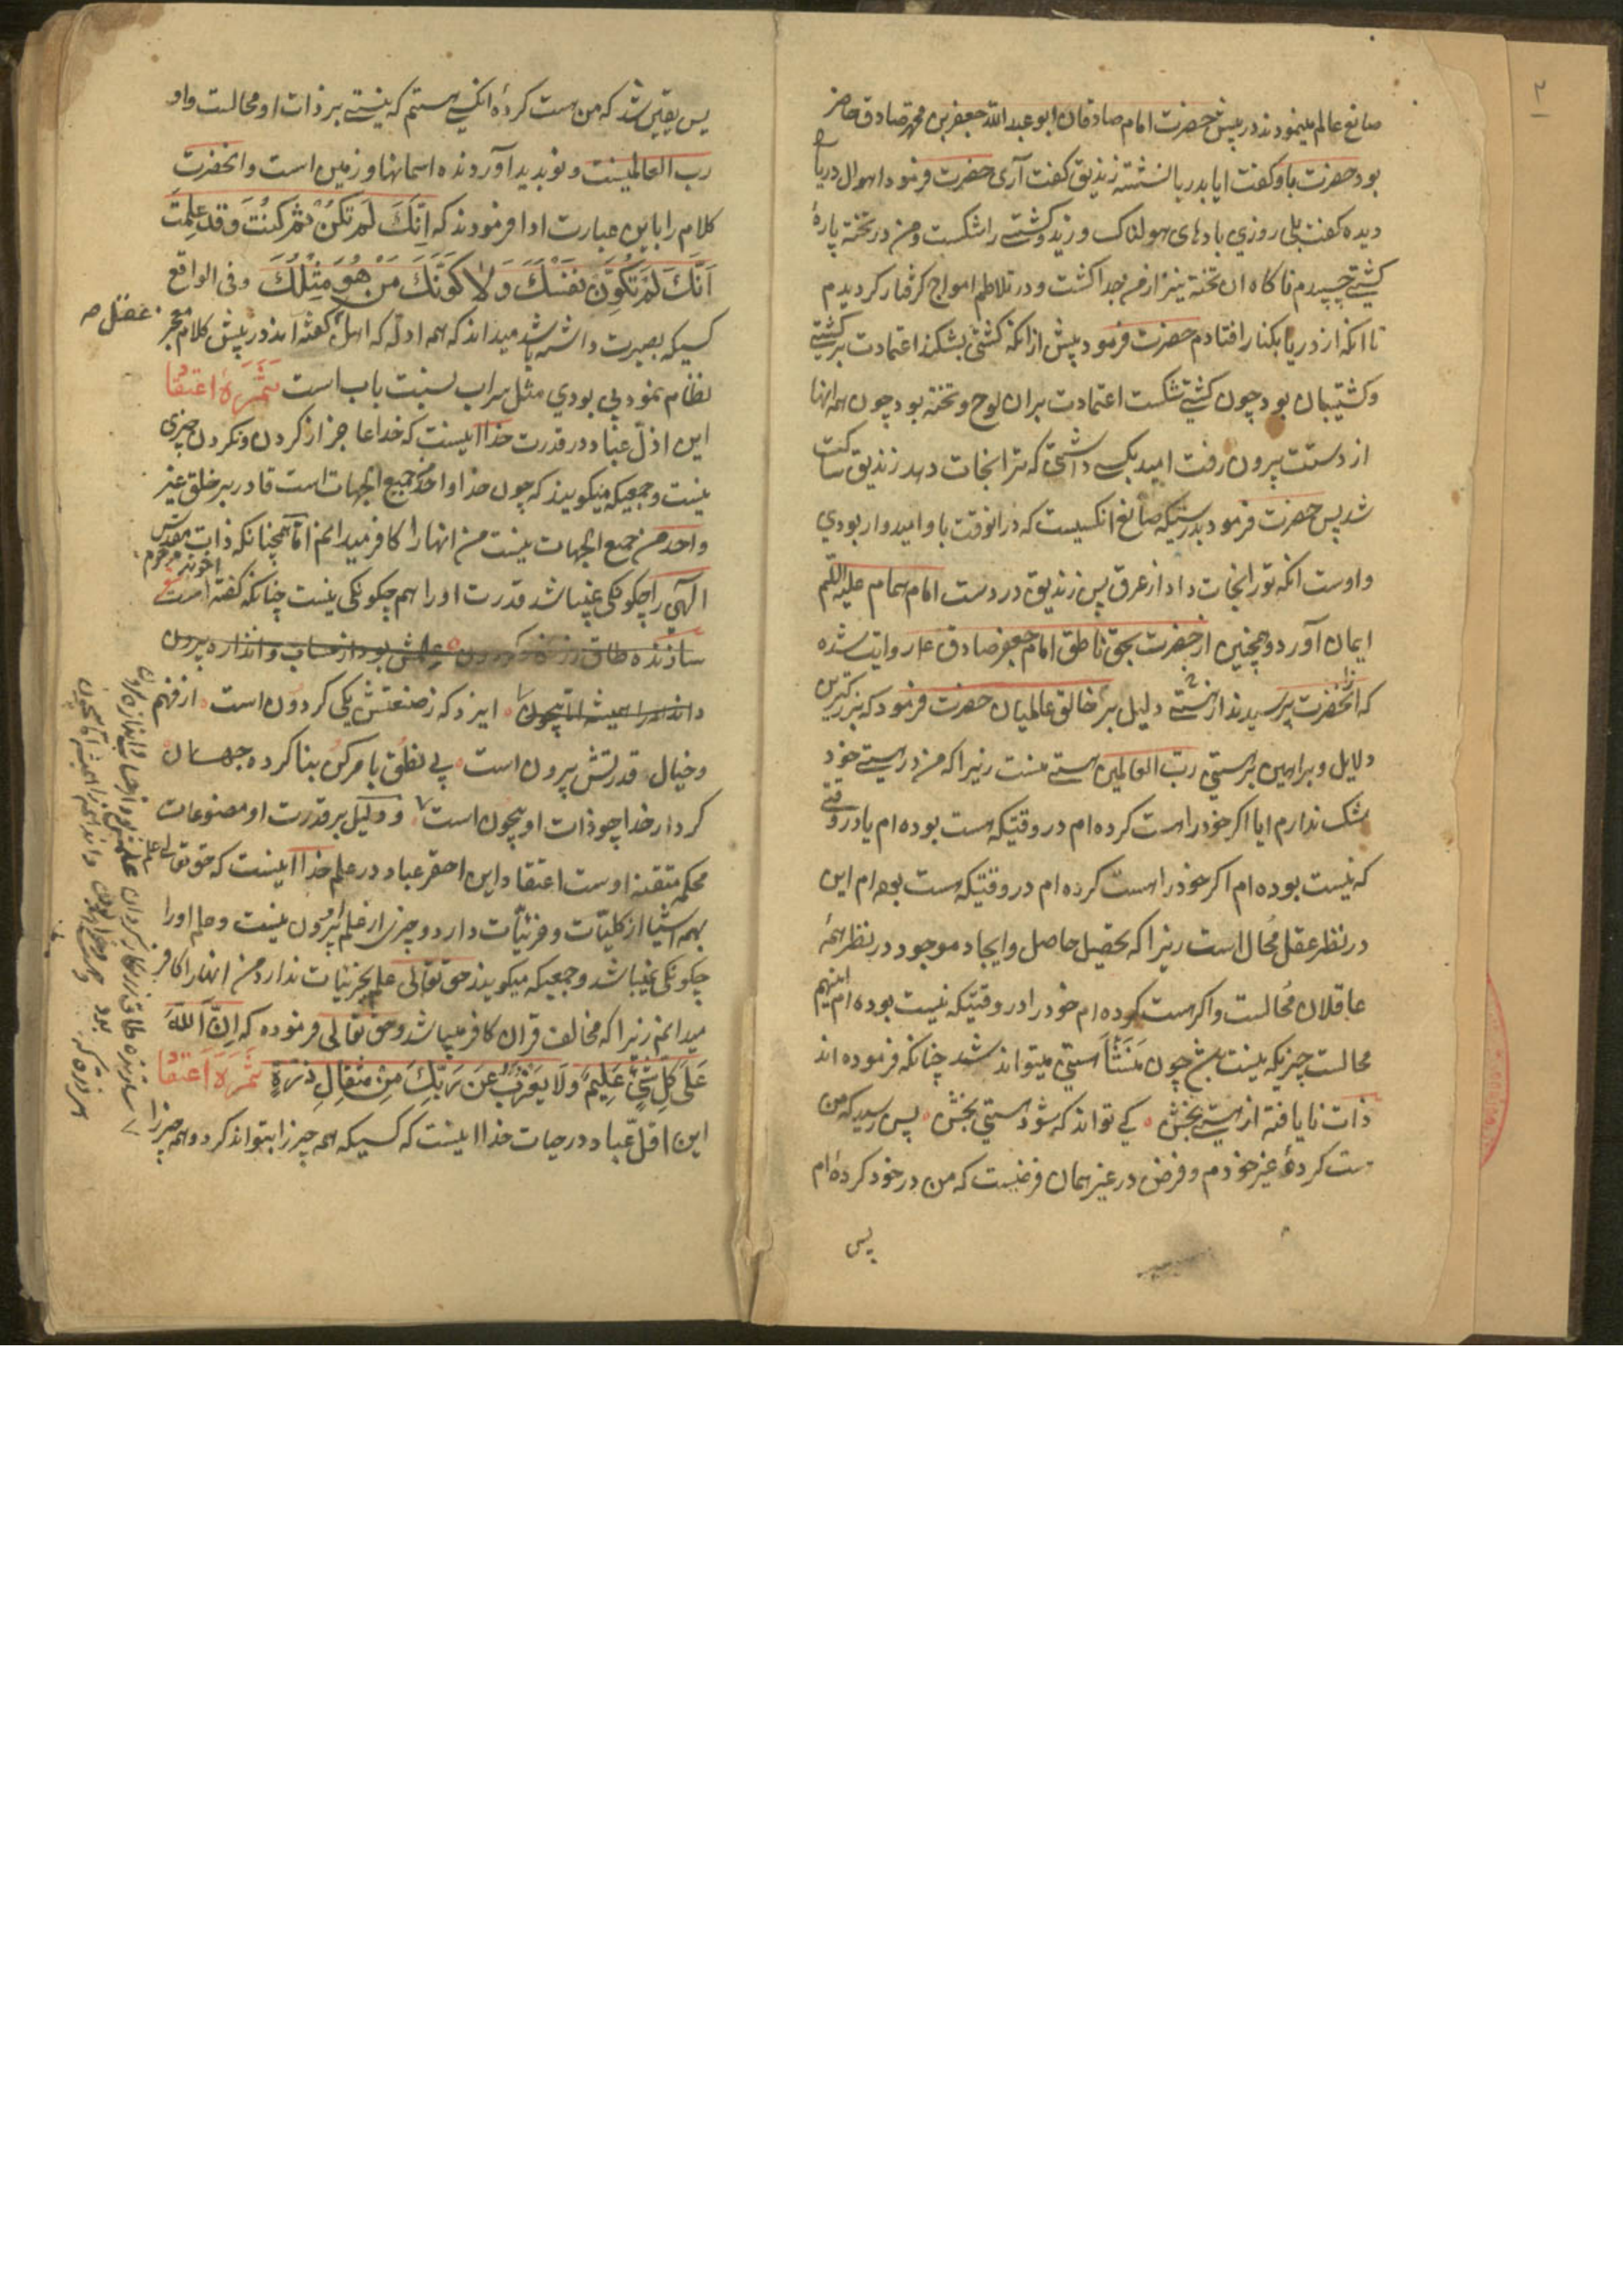 ۲
صانع عالم مینمودند در پیش حضرت امام صادقان ابو عبد الله جعفر بن محمد صادق حاضر
بود حضرت باو کفت ایا بدریا نشسته زندیق کفت آری حضرت فرمود اهوال دریا
دیده کفت بلی روزی بادهای هولناک وزید و کشتی را شکست و من در تخته پارهٔ
کشتی چسپیدم ناکاه ان تخته نیز از من جدا کشت و در تلاطم امواج کرفتار کردیدم
تا انکه از دریا بکنار افتادم حضرت فرمود پیش از انکه کشتی بشکند اعتمادت بر کشتی
و کشتیبان بود چون کشتی شکست اعتمادت بران لوح و تخته بود چون همه انها
از دستت بیرون رفت امید بکسی داشتی که ترا نجات دهد زندیق ساکت
شد پس حضرت فرمود بدرستیکه صانع انکسیست که درانوقت باو امیدوار بودی
و اوست انکه تو را نجات داد از غرق پس زندیق در دست امام همام علیه السلم
ایمان آورد و همچنین از حضرت بحق ناطق امام جعفر صادق ع روایت شده
که از انحضرت پرسیدند از هستی دلیل بر خالق عالمیان حضرت فرمود که بزرکترین
دلایل و براهین بر هستی رب العالمین هستی منست زیرا که من در هستی خود
شک ندارم ایا اکر خود را هست کرده ام در وقتیکه هست بوده ام یا در وقتی
که نیست بوده ام اکر خود را هست کرده ام در وقتیکه هست بوده ام این
در نظر عقل محال است زیرا که تحصیل حاصل و ایجاد موجود در نظر همهٔ
عاقلان محالست و اکر هست کرده ام خود را در وقتیکه نیست بوده ام اینهم
محالست چیزیکه نیست هیچ چون منشأ هستی میتواند شد چنانکه فرموده اند
ذات نایافته از هستی بخش ٥ کی تواند که شود هستی بخش ٥ پس رسید که من
هست کردهٔ غیر خودم و فرض در غیر همان فرضیست که من در خود کرده ام
پس
پس یقین شد که من هست کردهٔ انکسی هستم که نیستی بر ذات او محالست و او
رب العالمینست و نو پدید آورنده اسمانها و زمین است و انحضرت
کلام را باین عبارت ادا فرمودند که اِنَّكَ لَمْ تَكُنْ ثُمَّ كُنْتَ وَقَدْ عَلِمْتَ
اَنَّكَ لَمْ تُكَوِّنْ نَفْسَكَ وَلَا كَوَّنَكَ مَنْ هُوَ مِثْلُكَ و فی الواقع
کسیکه بصیرت داشته باشد میداند که همه ادله که اهل عقل کفته اند در پیش کلام معجز
نظام نمود بی بودی مثل سراب بنسبت باب است ثَمَرَهٔ اعتقاد
این اذلّ عباد در قدرت خدا اینست که خدا عاجز از کردن و نکردن چیزی
نیست و جمعیکه میکویند که چون خدا واحد من جمیع الجهات است قادر بر خلق غیر
واحد من جمیع الجهات نیست من انها را کافر میدانم امّا همچنانکه ذات مقدّس
الهی را چکونکی نمیباشد قدرت او را هم چکونکی نیست چنانکه کفته اخوند مرحوم
سازنده طاق زرنکار کردون ٥ علمش بود از حساب و اندازه بیرون
داننده را همیشه اما بیچون ٥ ایزد که ز صنعتش یکی کردون است ٥ از فهم
و خیال قدرتش بیرون است ٥ بی نطق با مر کن بنا کرده جهان
کردار خدا چو ذات او بیچون است ٧ و دلیل بر قدرت او مصنوعات
محکم متقنه اوست اعتقاد این احقر عباد در علم خدا اینست که حق تعالی علم
بهمه اشیا از کلیّات و جزئیّات دارد و چیزی از علم او بیرون نیست و علم او را
چکونکی نمیباشد و جمعیکه میکویند حق تعالی علم بجزئیات ندارد من انها را کافر
میدانم زیرا که مخالف قران کافر میباشد و حق تعالی فرموده که اِنَّ اللهَ
عَلَى كُلِّ شَيْءٍ عَلِيمٌ وَلَا يَعْزُبُ عَنْ رَبِّكَ مِنْ مِثْقَالِ ذَرَّةٍ ثَمَرَهٔ اعتقاد
این اقلّ عباد در حیات خدا اینست که کسیکه همه چیز را بتواند کرد و همه چیز را
عقل ص
٧ سازنده طاق زرنکار کردان علمش بود از حساب و اندازه برون